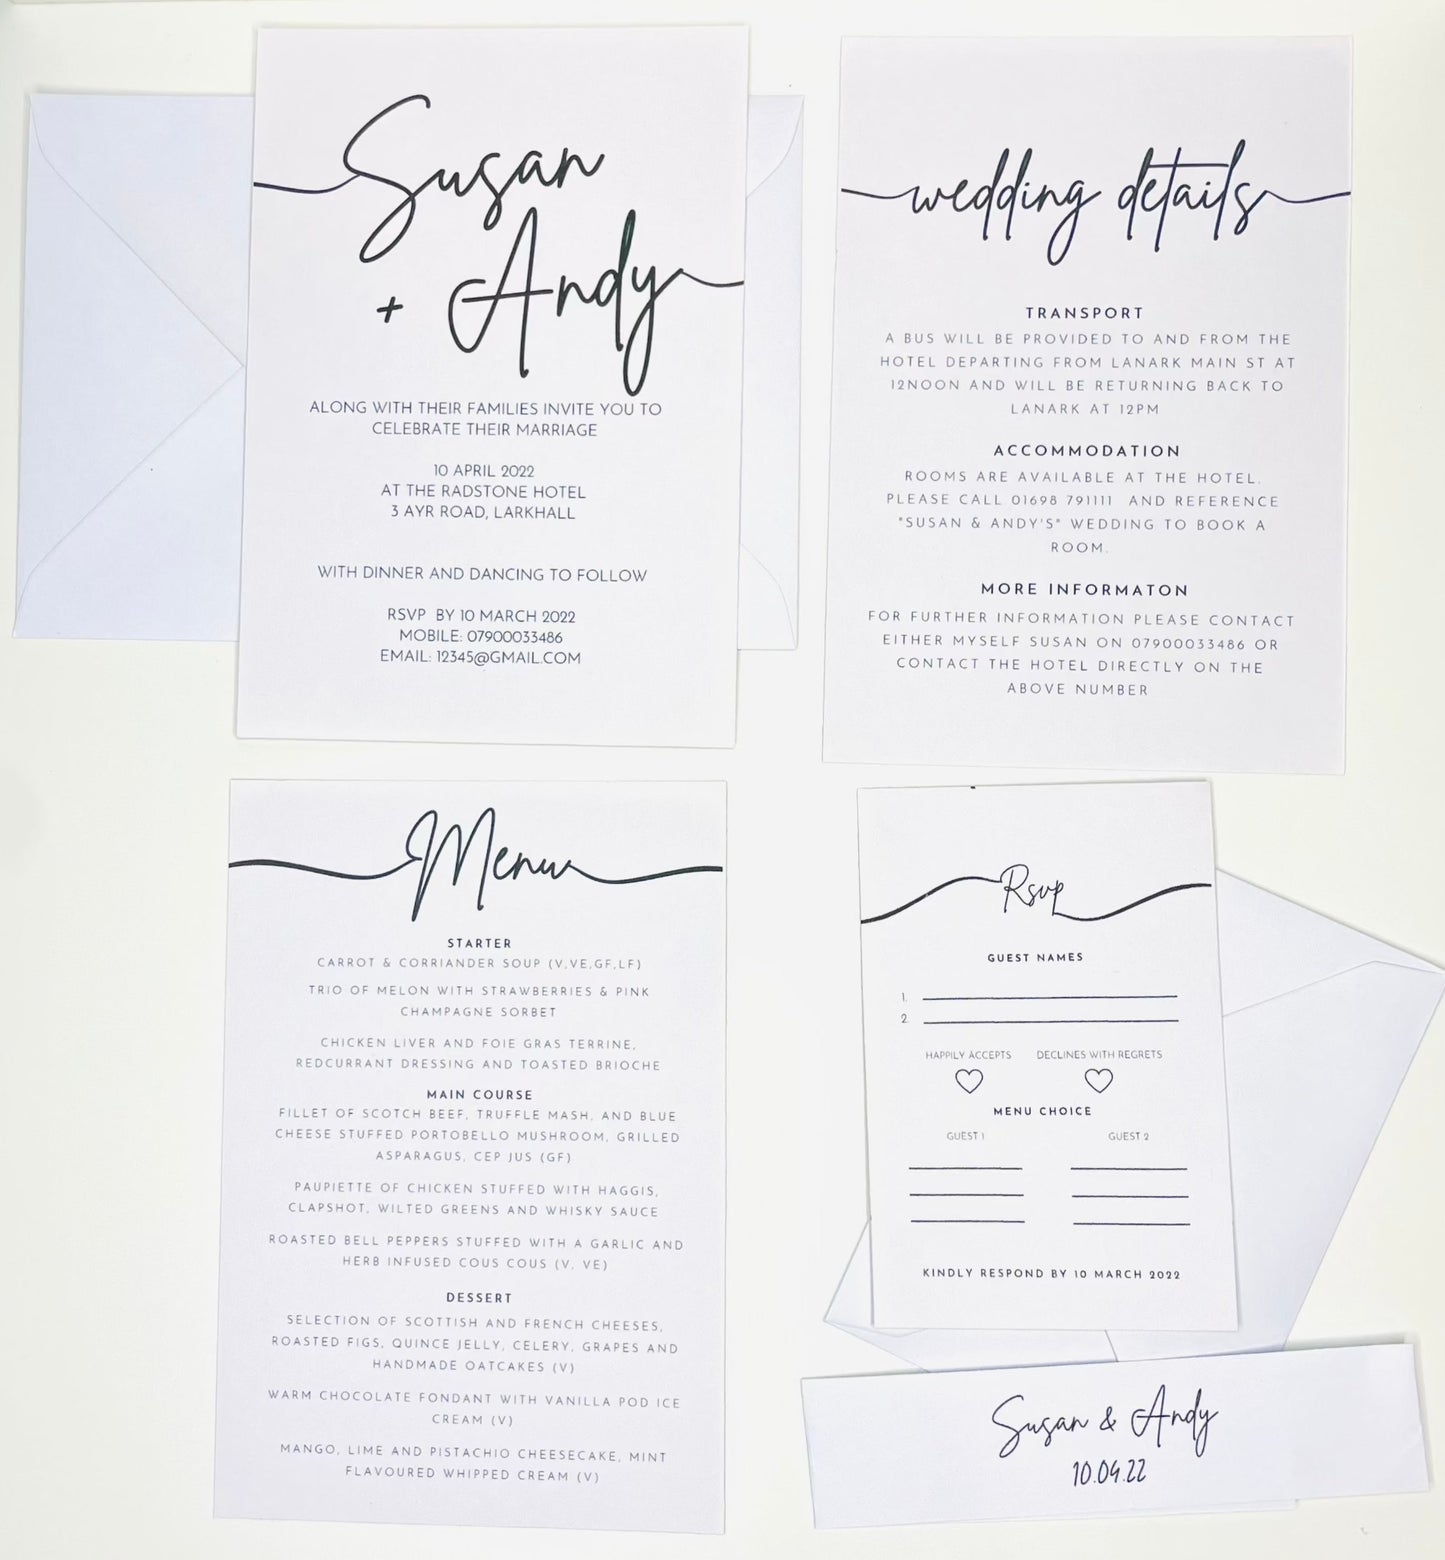 Susan
+ Andy
ALONG WITH THEIR FAMILIES INVITE YOU TO
CELEBRATE THEIR MARRIAGE
10 APRIL 2022
AT THE RADSTONE HOTEL
3 AYR ROAD, LARKHALL
WITH DINNER AND DANCING TO FOLLOW
RSVP BY 10 MARCH 2022
MOBILE: 07900033486
EMAIL: 12345@GMAIL.COM
wedding details
TRANSPORT
A BUS WILL BE PROVIDED TO AND FROM THE
HOTEL DEPARTING FROM LANARK MAIN ST AT
12NOON AND WILL BE RETURNING BACK TO
LANARK AT 12PM
ACCOMMODATION
ROOMS ARE AVAILABLE AT THE HOTEL.
PLEASE CALL 01698 791111 AND REFERENCE
"SUSAN & ANDY'S" WEDDING TO BOOK A
ROOM.
MORE INFORMATON
FOR FURTHER INFORMATION PLEASE CONTACT
EITHER MYSELF SUSAN ON 07900033486 OR
CONTACT THE HOTEL DIRECTLY ON THE
ABOVE NUMBER
Menu
STARTER
CARROT & CORRIANDER SOUP (V,VE,GF,LF)
TRIO OF MELON WITH STRAWBERRIES & PINK
CHAMPAGNE SORBET
CHICKEN LIVER AND FOIE GRAS TERRINE,
REDCURRANT DRESSING AND TOASTED BRIOCHE
MAIN COURSE
FILLET OF SCOTCH BEEF, TRUFFLE MASH, AND BLUE
CHEESE STUFFED PORTOBELLO MUSHROOM, GRILLED
ASPARAGUS, CEP JUS (GF)
PAUPIETTE OF CHICKEN STUFFED WITH HAGGIS,
CLAPSHOT, WILTED GREENS AND WHISKY SAUCE
ROASTED BELL PEPPERS STUFFED WITH A GARLIC AND
HERB INFUSED COUS COUS (V, VE)
DESSERT
SELECTION OF SCOTTISH AND FRENCH CHEESES,
ROASTED FIGS, QUINCE JELLY, CELERY, GRAPES AND
HANDMADE OATCAKES (V)
WARM CHOCOLATE FONDANT WITH VANILLA POD ICE
CREAM (V)
MANGO, LIME AND PISTACHIO CHEESECAKE, MINT
FLAVOURED WHIPPED CREAM (V)
Rsvp
GUEST NAMES
1.
2.
HAPPILY ACCEPTS DECLINES WITH REGRETS
MENU CHOICE
GUEST 1 GUEST 2
KINDLY RESPOND BY 10 MARCH 2022
Susan & Andy
10.04.22